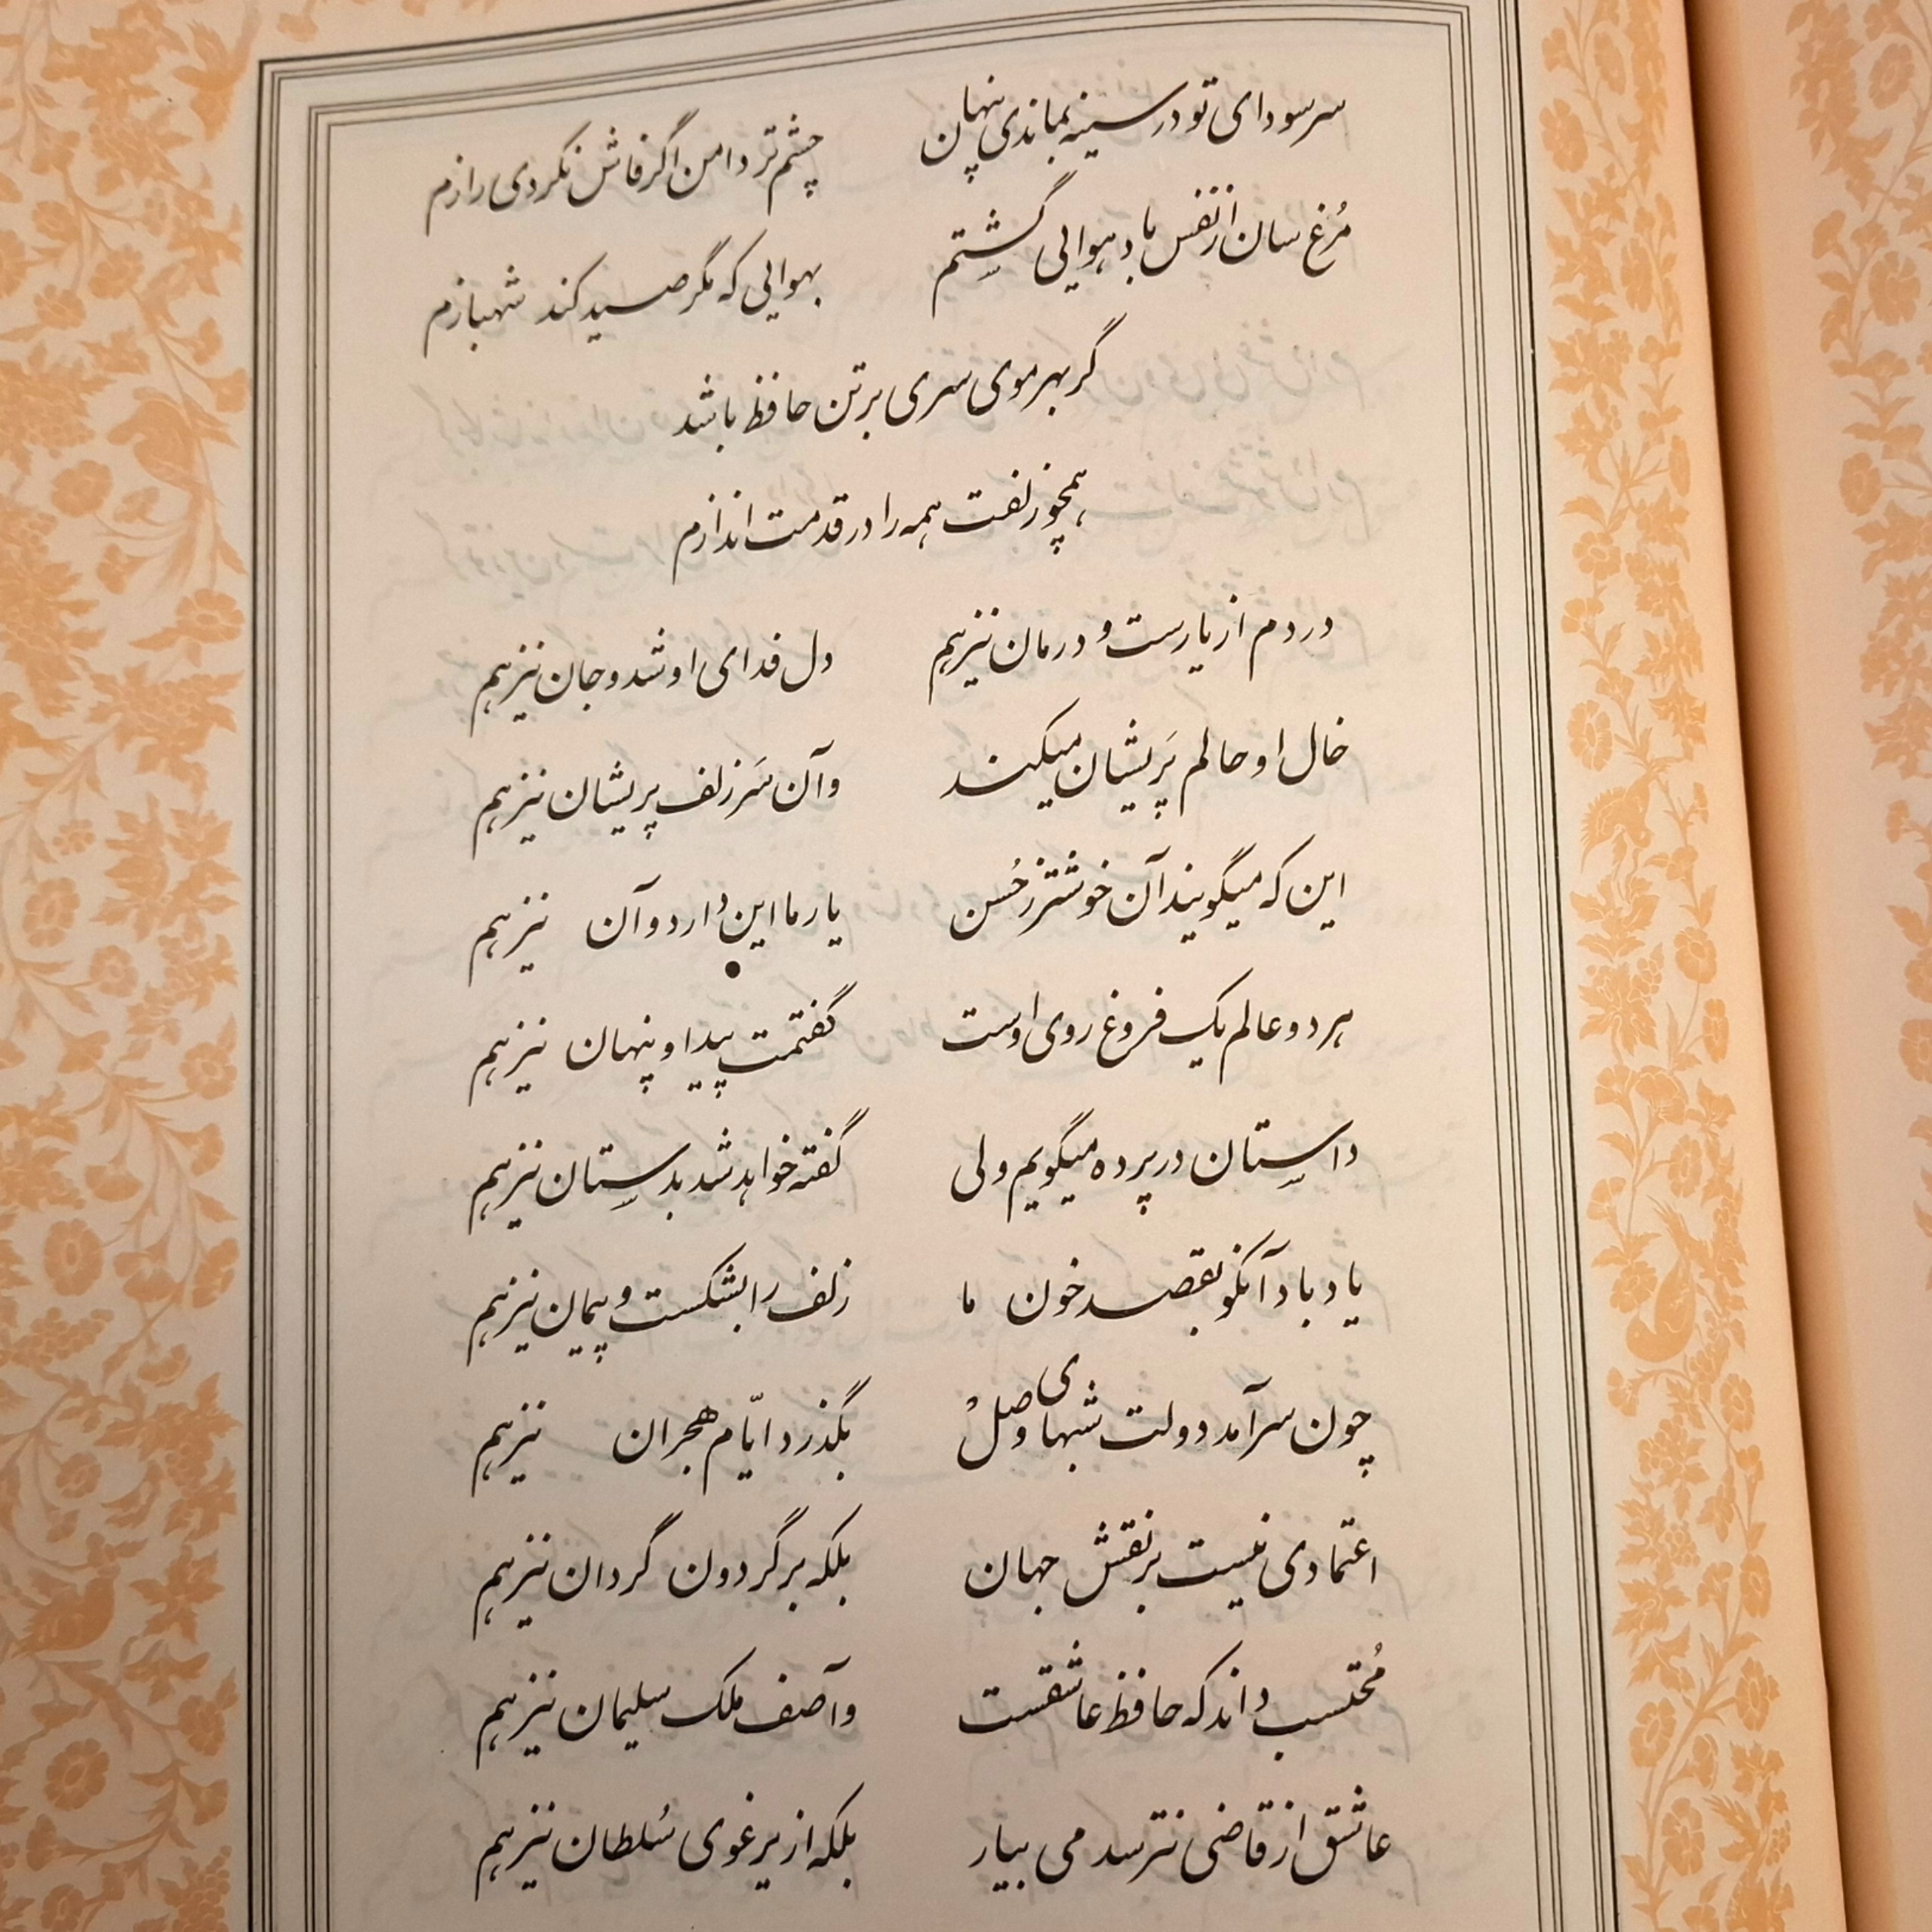 سر سودای تو در سینه بماندی پنهان چشم تر دامن اگر فاش نکردی رازم
مُرغ سان از قفس باد هوایی گشتم بهوایی که مگر صید کند شهبازم
گر بهر موی سری بر تن حافظ باشد
همچو زلفت همه را در قدمت اندازم
دردم از یارست و درمان نیز هم دل فدای او شد و جان نیز هم
خال او حالم پَریشان میکند وآن سَر زلف پریشان نیز هم
این که میگویند آن خوشتر ز حُسن یار ما این دارد و آن نیز هم
هر دو عالم یک فروغ روی اوست گفتمت پیدا و پنهان نیز هم
داستان در پرده میگویم ولی گفته خواهد شد بدستان نیز هم
یاد باد آنکو بقصد خون ما زلف را بشکست و پیمان نیز هم
چون سرآمد دولت شبهای وصلْ بگذرد ایّام هجران نیز هم
اعتمادی نیست بر نقش جهان بلکه بر گردون گردان نیز هم
مُحتسب داند که حافظ عاشقست وآصف ملک سلیمان نیز هم
عاشق از قاضی نترسد می بیار بلکه از یرغوی سُلطان نیز هم